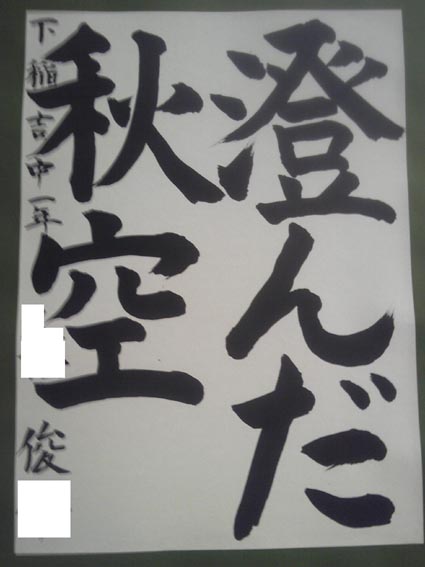 澄んだ
秋空
下稲吉中一年
俊